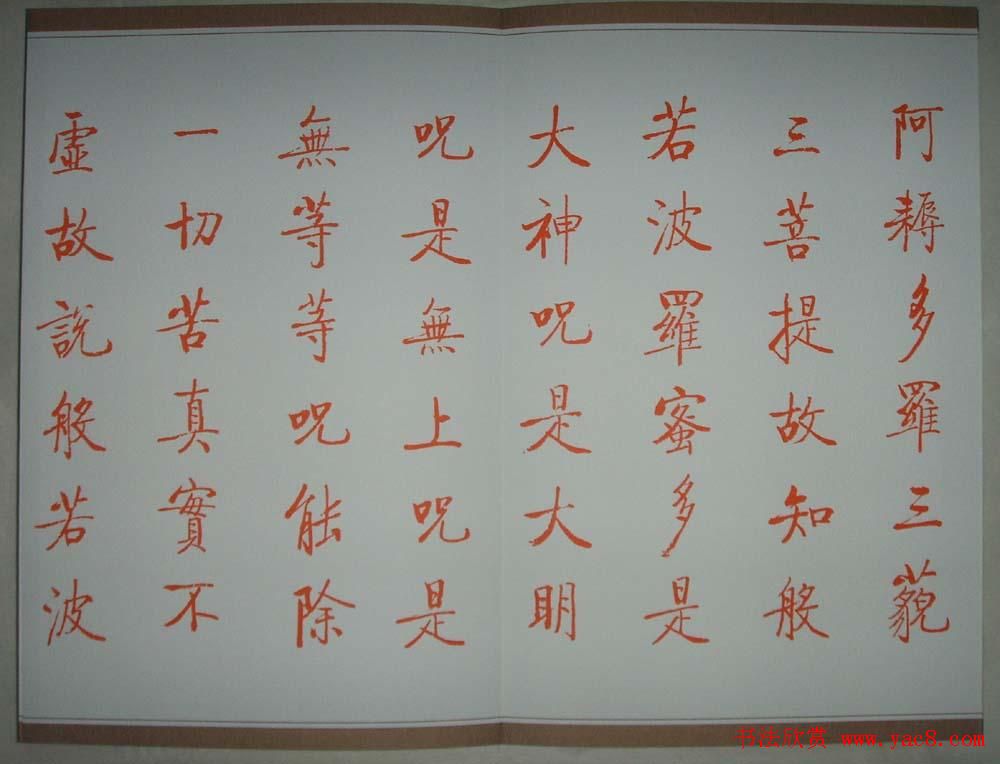 阿耨多羅三藐
三菩提故知般
若波羅蜜多是
大神呪是大明
呪是無上呪是
無等等呪能除
一切苦真實不
虛故說般若波
书法欣赏 www.yac8.com